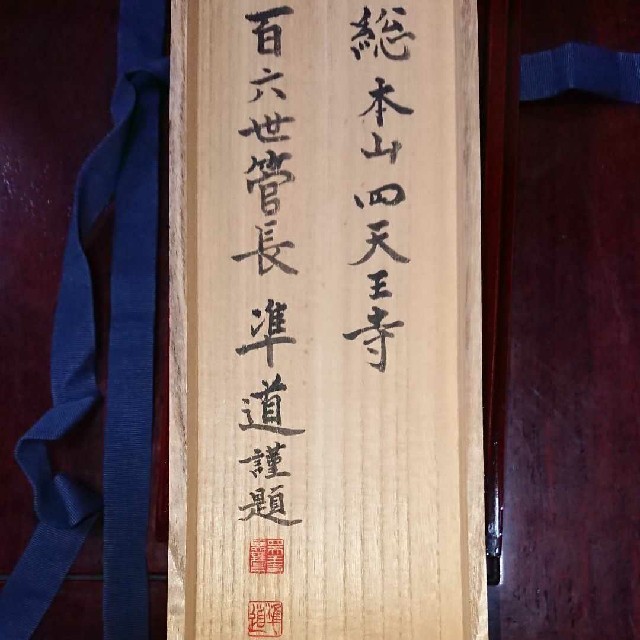 総本山四天王寺
百六世管長凖道謹題